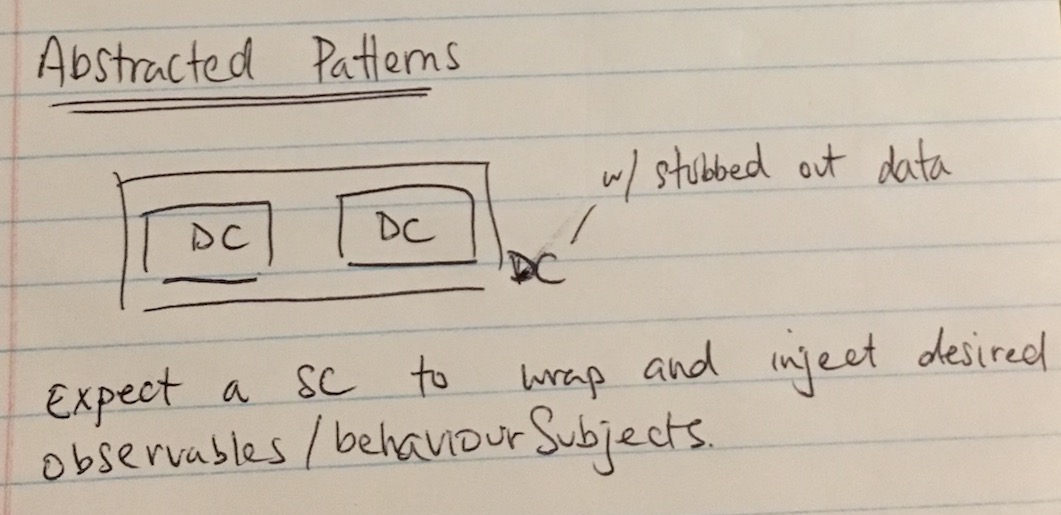 Abstracted Patterns
w/ stubbed out data
DC DC
DC
Expect a SC to wrap and inject desired
observables/behaviourSubjects.